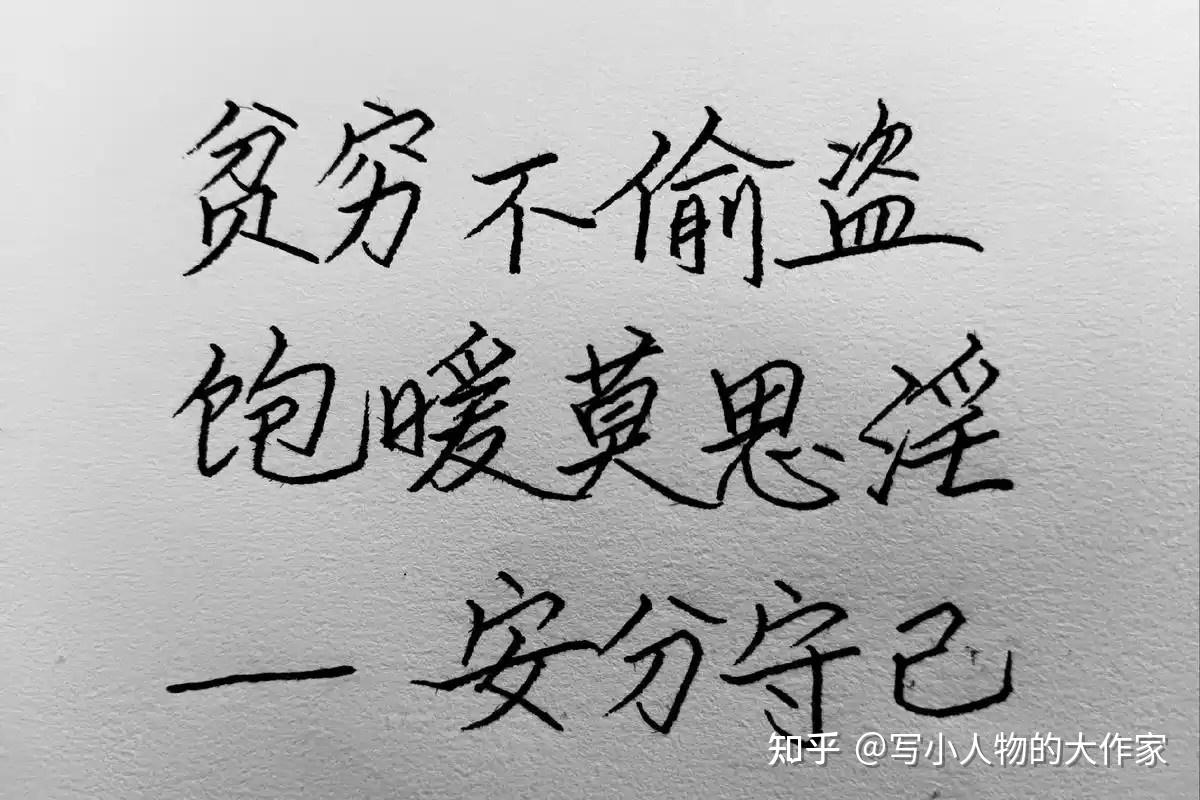 贫穷不偷盗
饱暖莫思淫
—安分守己
知乎 @写小人物的大作家